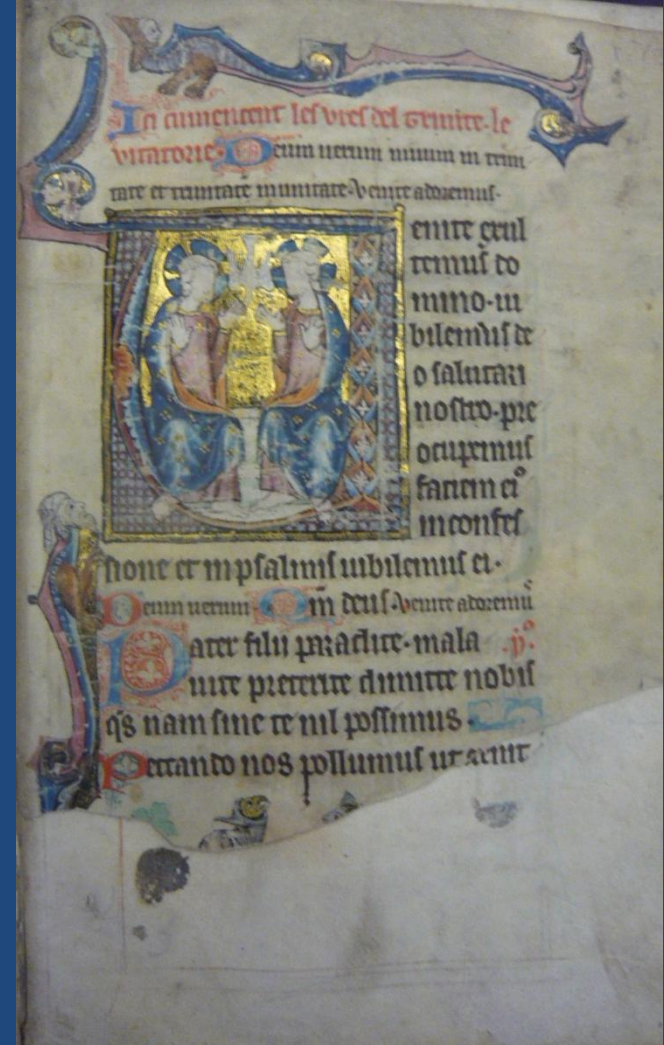 Ici cumencent les vres del trinite. le
vitatorie. Deum uerum unum in trini
tate et trinitate in unitate. venite adoremus.
enite exul
temus do
mino. iu
bilemus de
o salutari
nostro. pre
ocupemus
faciem ei⁹
in confes
sione et in psalmis iubilemus ei.
Deum uerum Qm̄ deus. venite adoremus
Pater filii paraclite. mala p̄⁹.
uite preterite dimitte nobis
q̄s nam sine te nil possumus.
Peccando nos pollumus ut